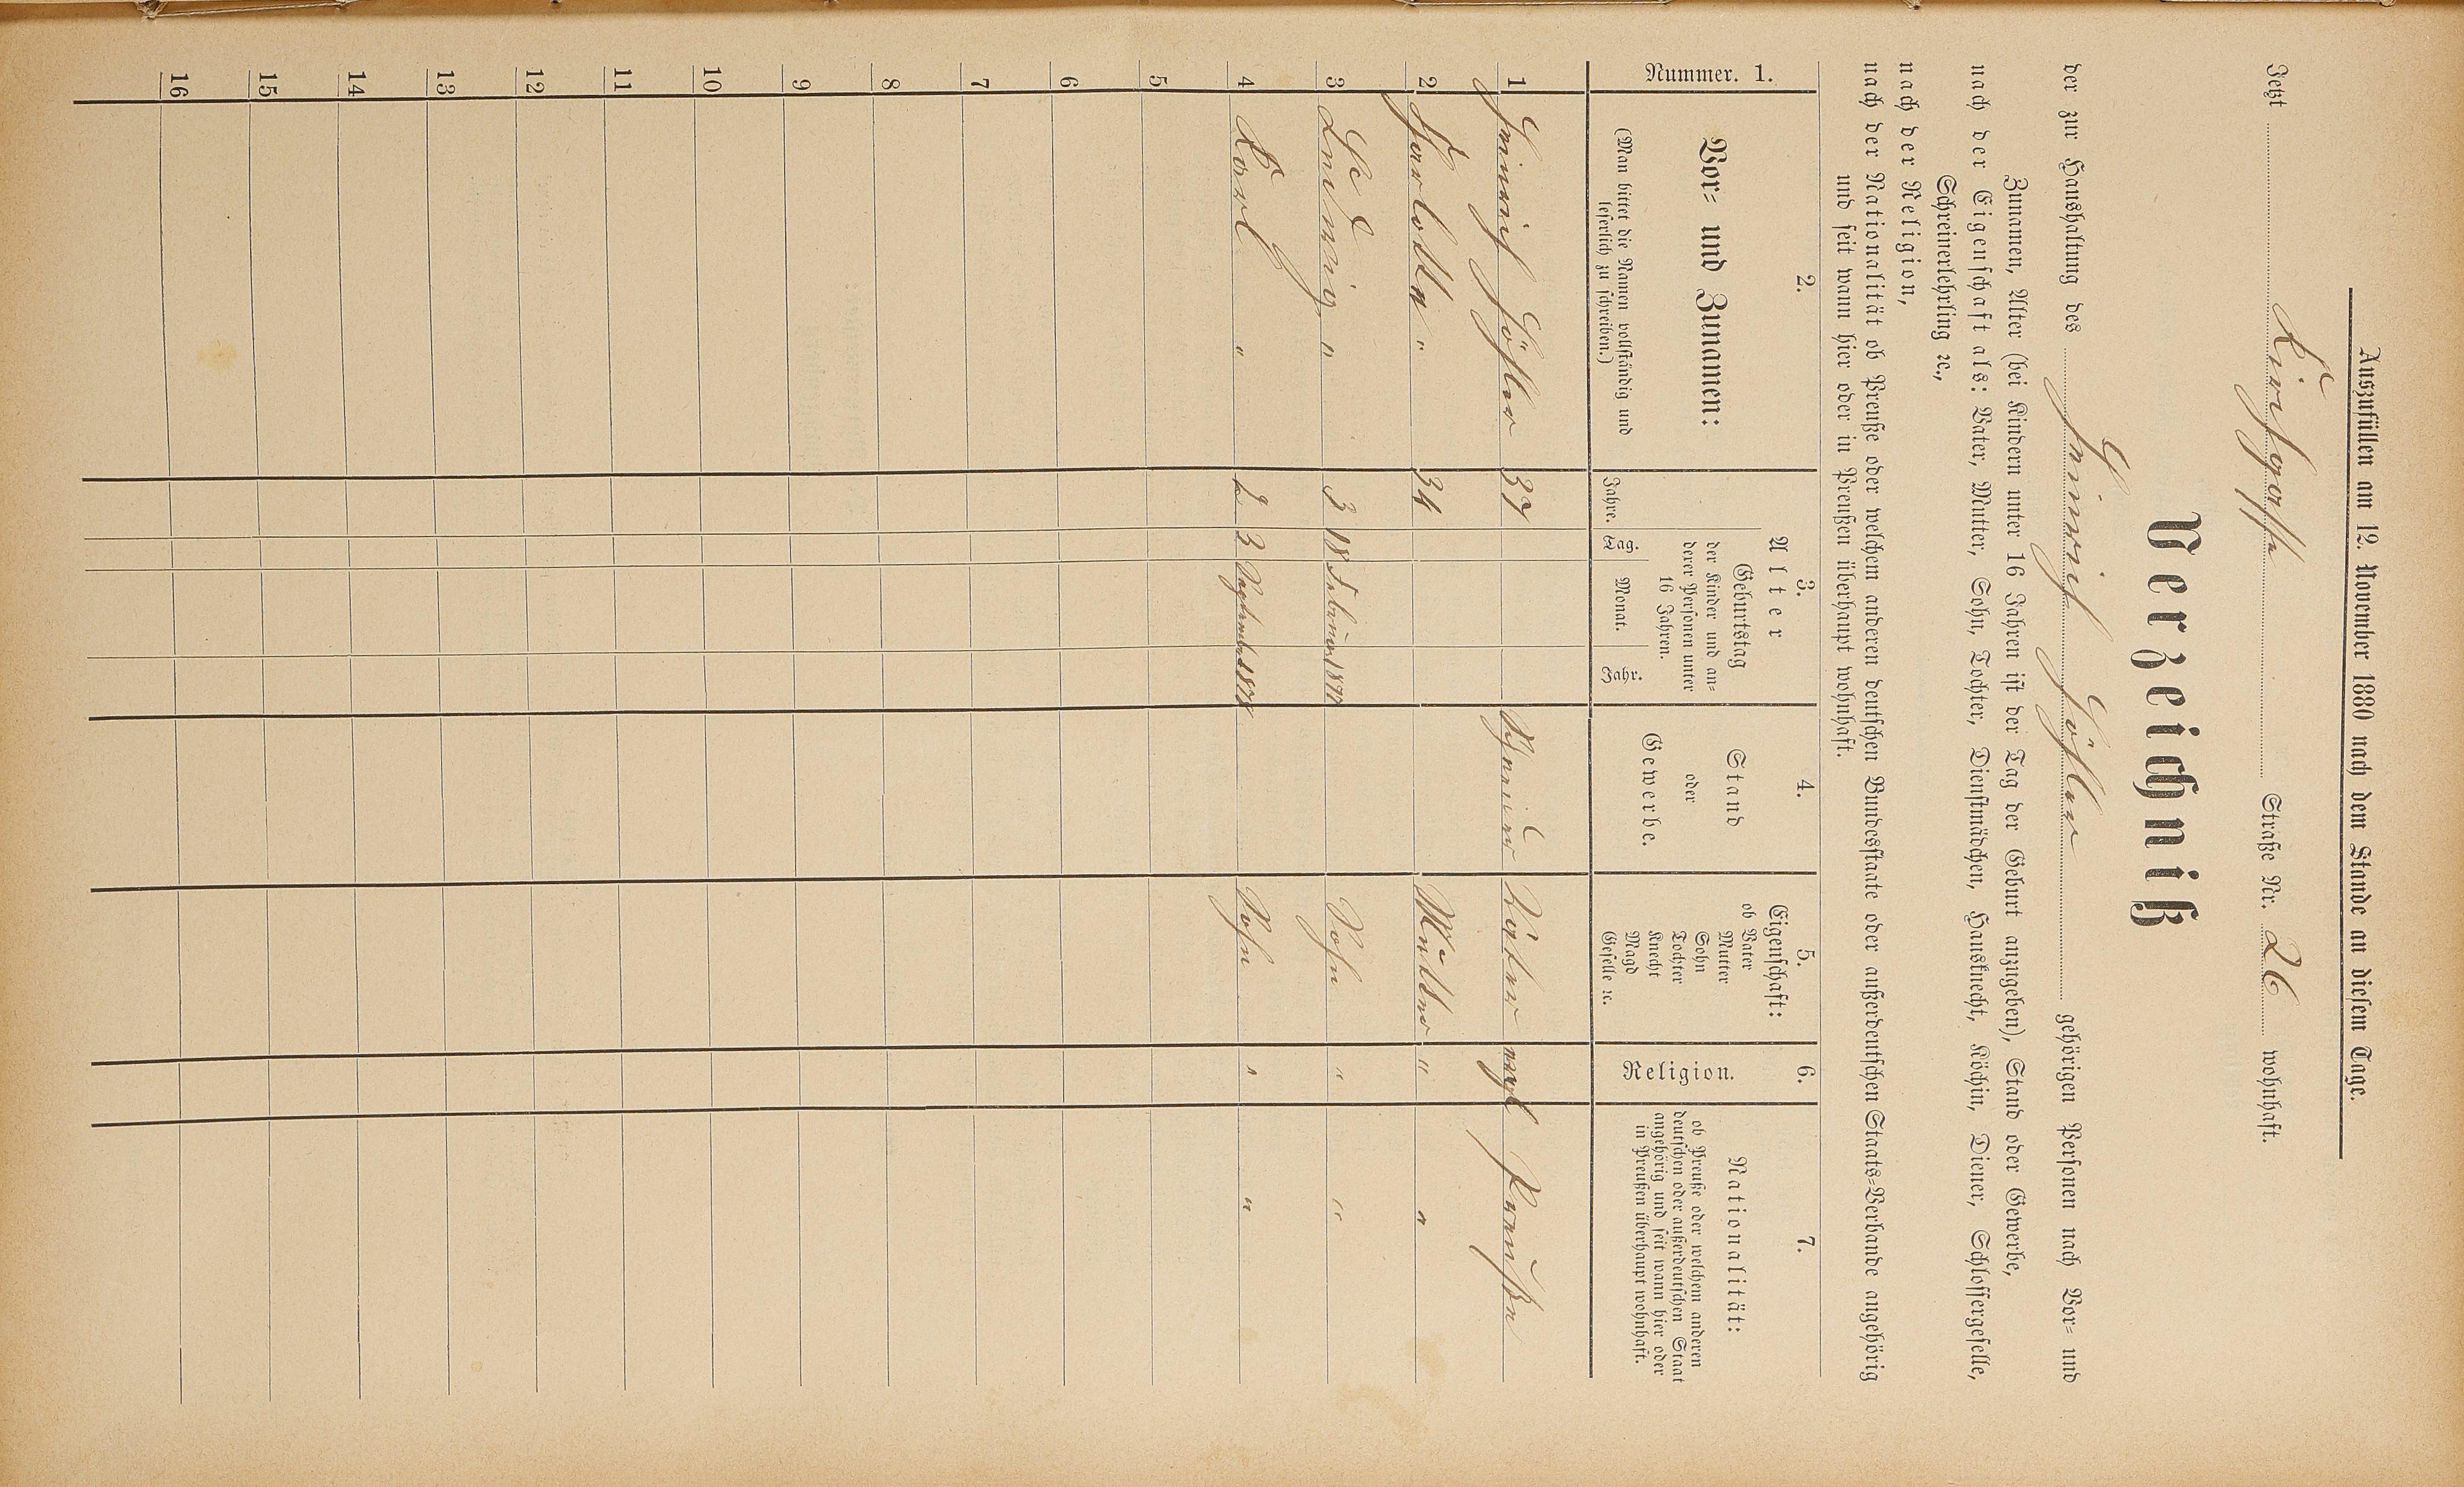 Auszufüllen am 12. November 1880 nach dem Stande an diesem Tage.
Jetzt Kirchgasse Straße Nr. 26 wohnhaft.
Verzeichniß
der zur Haushaltung des Heinrich gehörigen Personen nach Vor- und
Zunamen, Alter (bei Kindern unter 16 Jahren ist der Tag der Geburt anzugeben), Stand oder Gewerbe,
nach der Eigenschaft als: Vater, Mutter, Sohn, Tochter, Dienstmädchen, Hausknecht, Köchin, Diener, Schlossergeselle,
Schreinerlehrling ꝛc.,
nach der Religion,
nach der Nationalität ob Preuße oder welchem anderen deutschen Bundesstaate oder außerdeutschen Staats-Verbande angehörig
und seit wann hier oder in Preußen überhaupt wohnhaft.
Nummer. 1.
2.
Vor- und Zunamen:
(Man bittet die Namen vollständig und
leserlich zu schreiben.)
3.
Alter
Jahre.
Geburtstag
der Kinder und an-
derer Personen unter
16 Jahren.
Tag. Monat. Jahr.
4.
Stand
oder
Gewerbe.
5.
Eigenschaft:
ob Vater
Mutter
Sohn
Tochter
Knecht
Magd
Geselle ꝛc.
6.
Religion.
7.
Nationalität:
ob Preuße oder welchem anderen
deutschen oder außerdeutschen Staat
angehörig und seit wann hier oder
in Preußen überhaupt wohnhaft.
1 Heinrich 37 Schreiner Vater evgl Preuße
2 " 34 Mutter " "
3 Ludwig " 3 18 Februar 1877 Sohn " "
4 Karl " 2 3 September 1878 Sohn " "
5
6
7
8
9
10
11
12
13
14
15
16